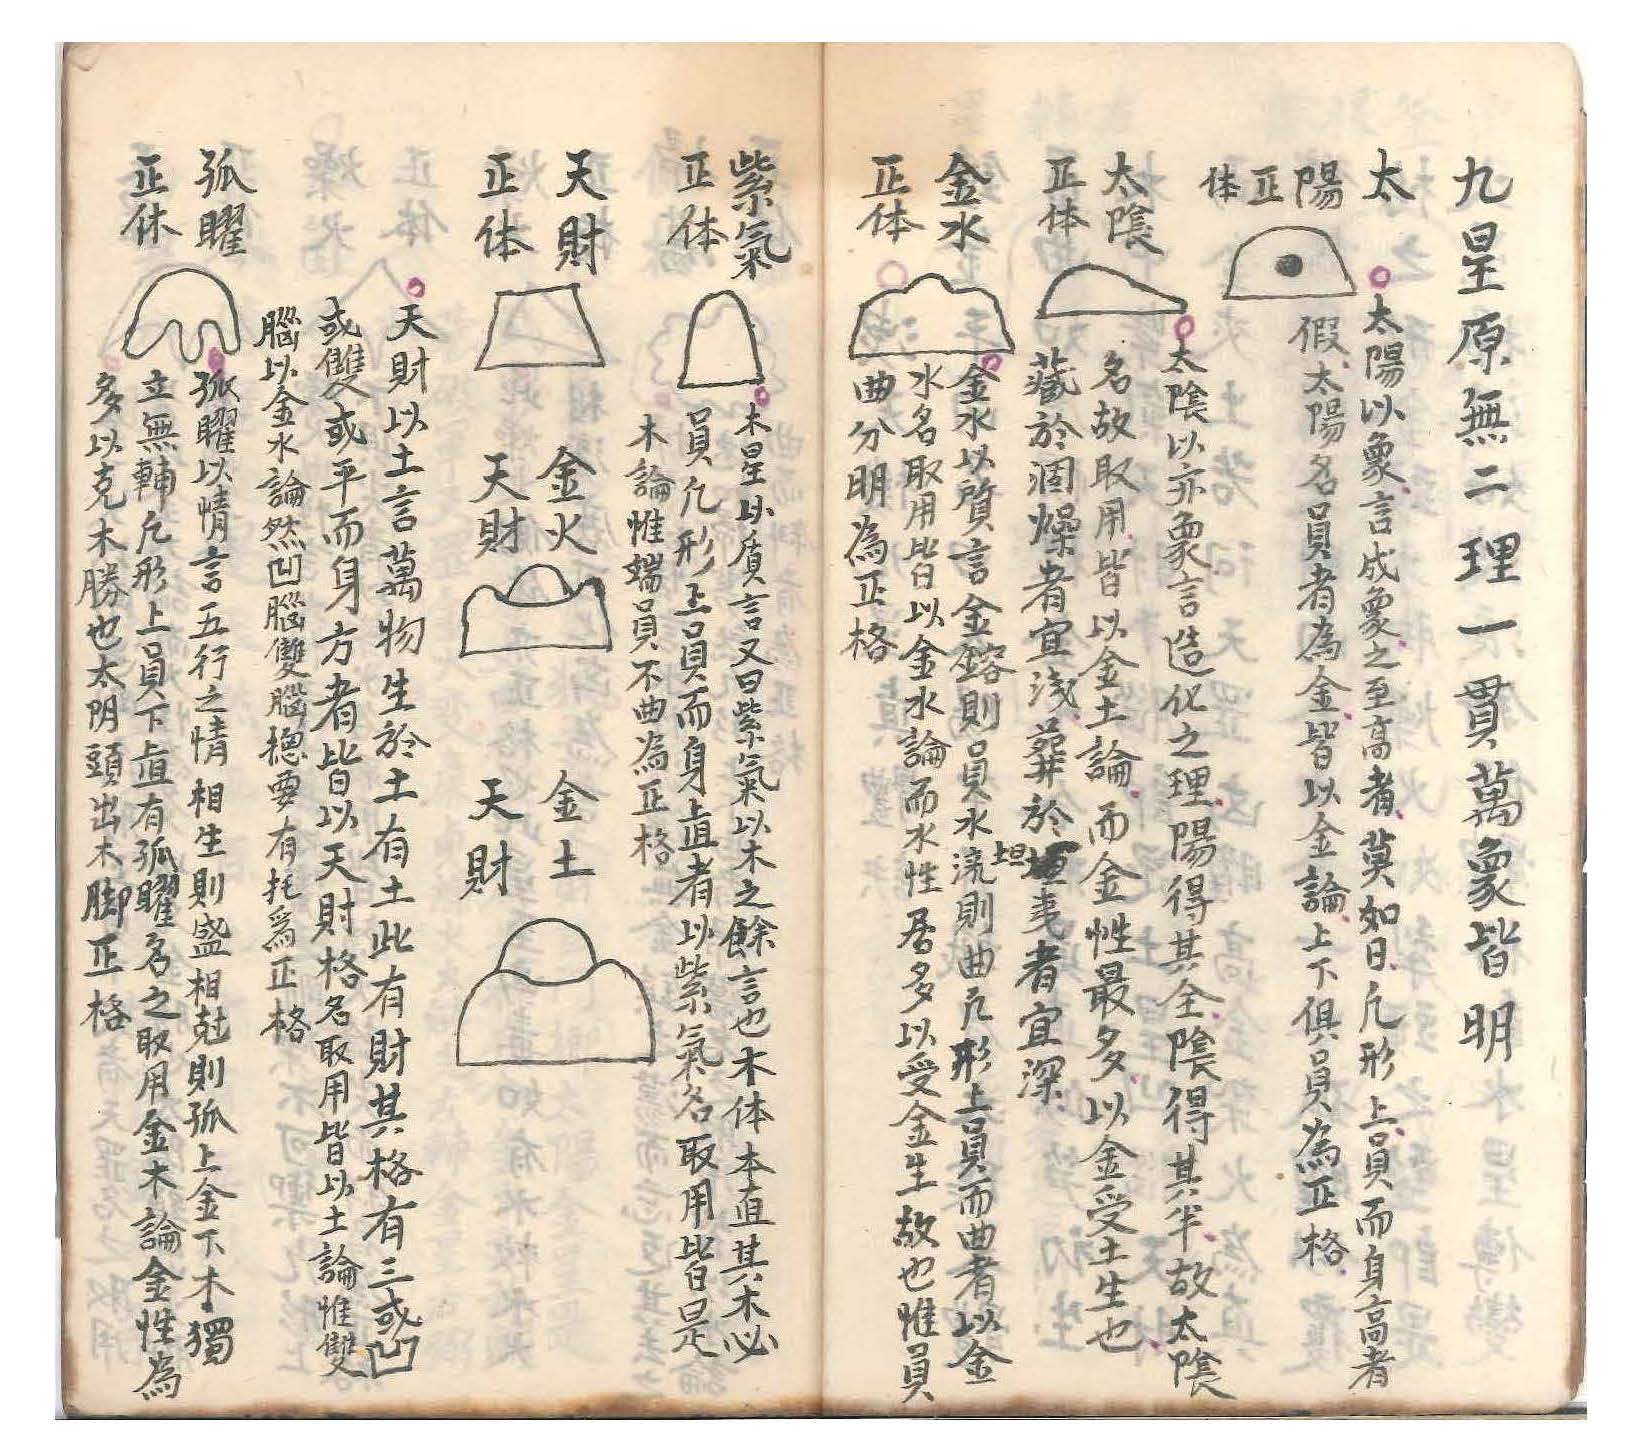 九星原無二理一貫萬象皆明
太陽正体
太陽以象言成象之至高者莫如日凢形上員而身高者
假太陽名員者為金皆以金論上下俱員為正格
太陰
正体
太陰以亦象言造化之理陽得其全陰得其半故太陰
名故取用皆以金土論而金性最多以金受土生也
藏於涸燥者宜浅葬於坦夷者宜深
金水
正体
金水以質言金鎔則員水流則曲凢形上員而曲者以金
水名取用皆以金水論而水性居多以受金生故也惟員
曲分明為正格
紫氣
正体
木星以質言又曰紫氣以木之餘言也木体本直其木必
員凢形上員而身直者以紫氣名取用皆是
木論惟端員不曲為正格
天財
正体
金火
天財
金土
天財
天財以土言萬物生於土有土此有財其格有三或凹
或雙或平而身方者皆以天財格名取用皆以土論惟雙
腦以金水論然凹腦雙腦摠要有托爲正格
孤曜
正体
孤曜以情言五行之情相生則盛相尅則孤上金下木獨
立無輔凢形上員下直有孤曜名之取用金木論金性為
多以克木勝也太阴頭出木脚正格